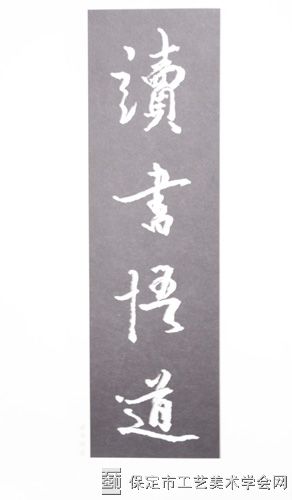 讀書悟道
保定市工艺美术学会网